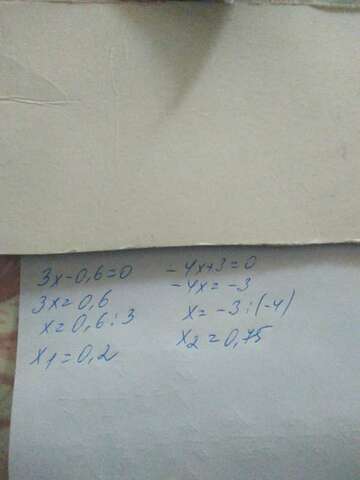 3x-0,6=0
3x=0,6
x=0,6:3
x1=0,2
-4x+3=0
-4x=-3
x=-3:(-4)
x2=0,75